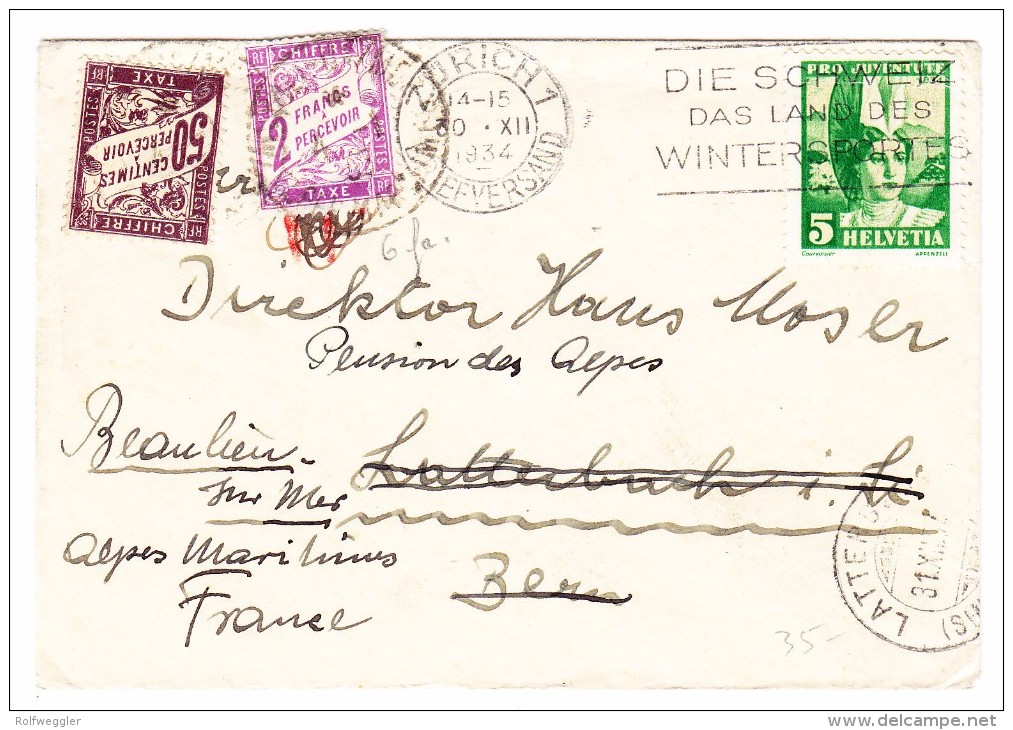 CHIFFRE
50
CENTIMES
A
PERCEVOIR
TAXE
RF
POSTES
POSTES
RF
RF
CHIFFRE
2
FRANCS
A
PERCEVOIR
POSTES
POSTES
TAXE
RF
ZÜRICH 1
14-15
30 · XII
1934
BRIEFVERSAND
DIE SCHWEIZ
DAS LAND DES
WINTERSPORTES
PRO JUVENTUTE
5 HELVETIA
Courvoisier
APPENZELL
6 fa.
Direktor Hans Moser
Pension des Alpes
Beaulieu- Latterbach i. Si.
sur Mer
Alpes Maritimes
Bern
France
LATTERB
31.XII.
35-
Rolfweggler
delcampe.net